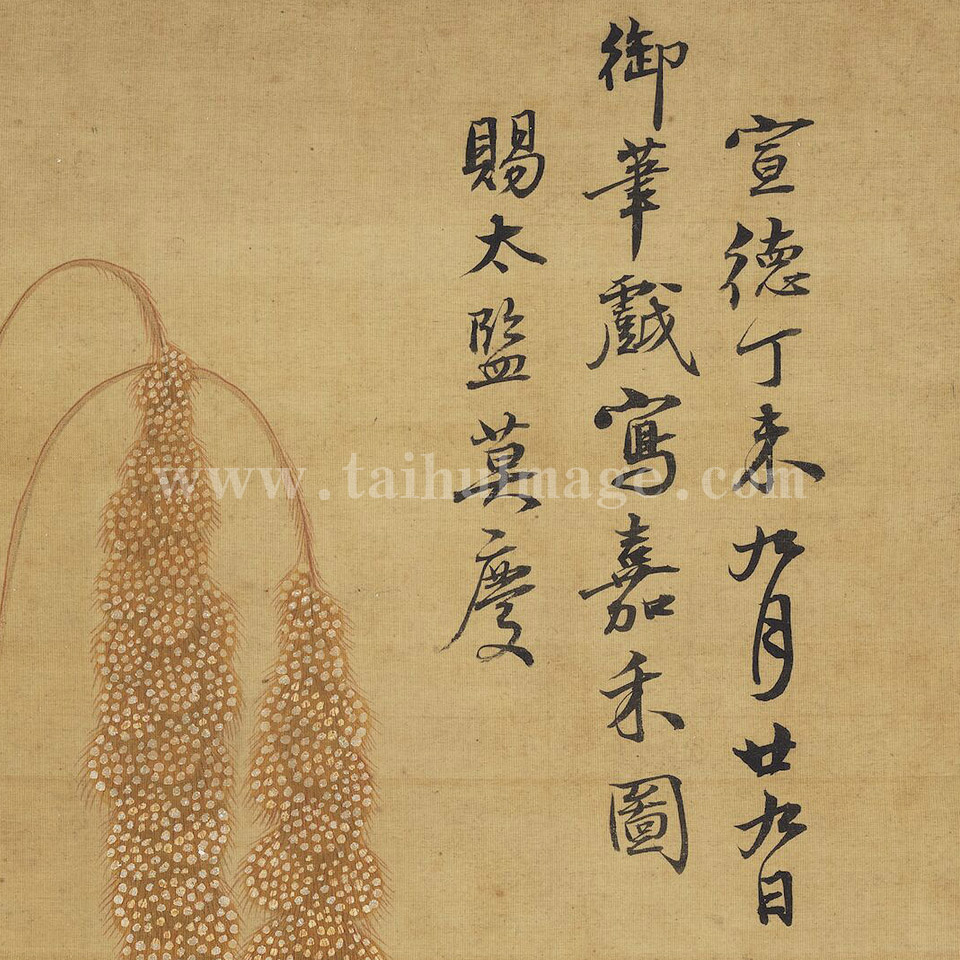 宣德丁未九月廿九日
御筆戲寫嘉禾圖
賜太監莫慶
www.taihuimage.com